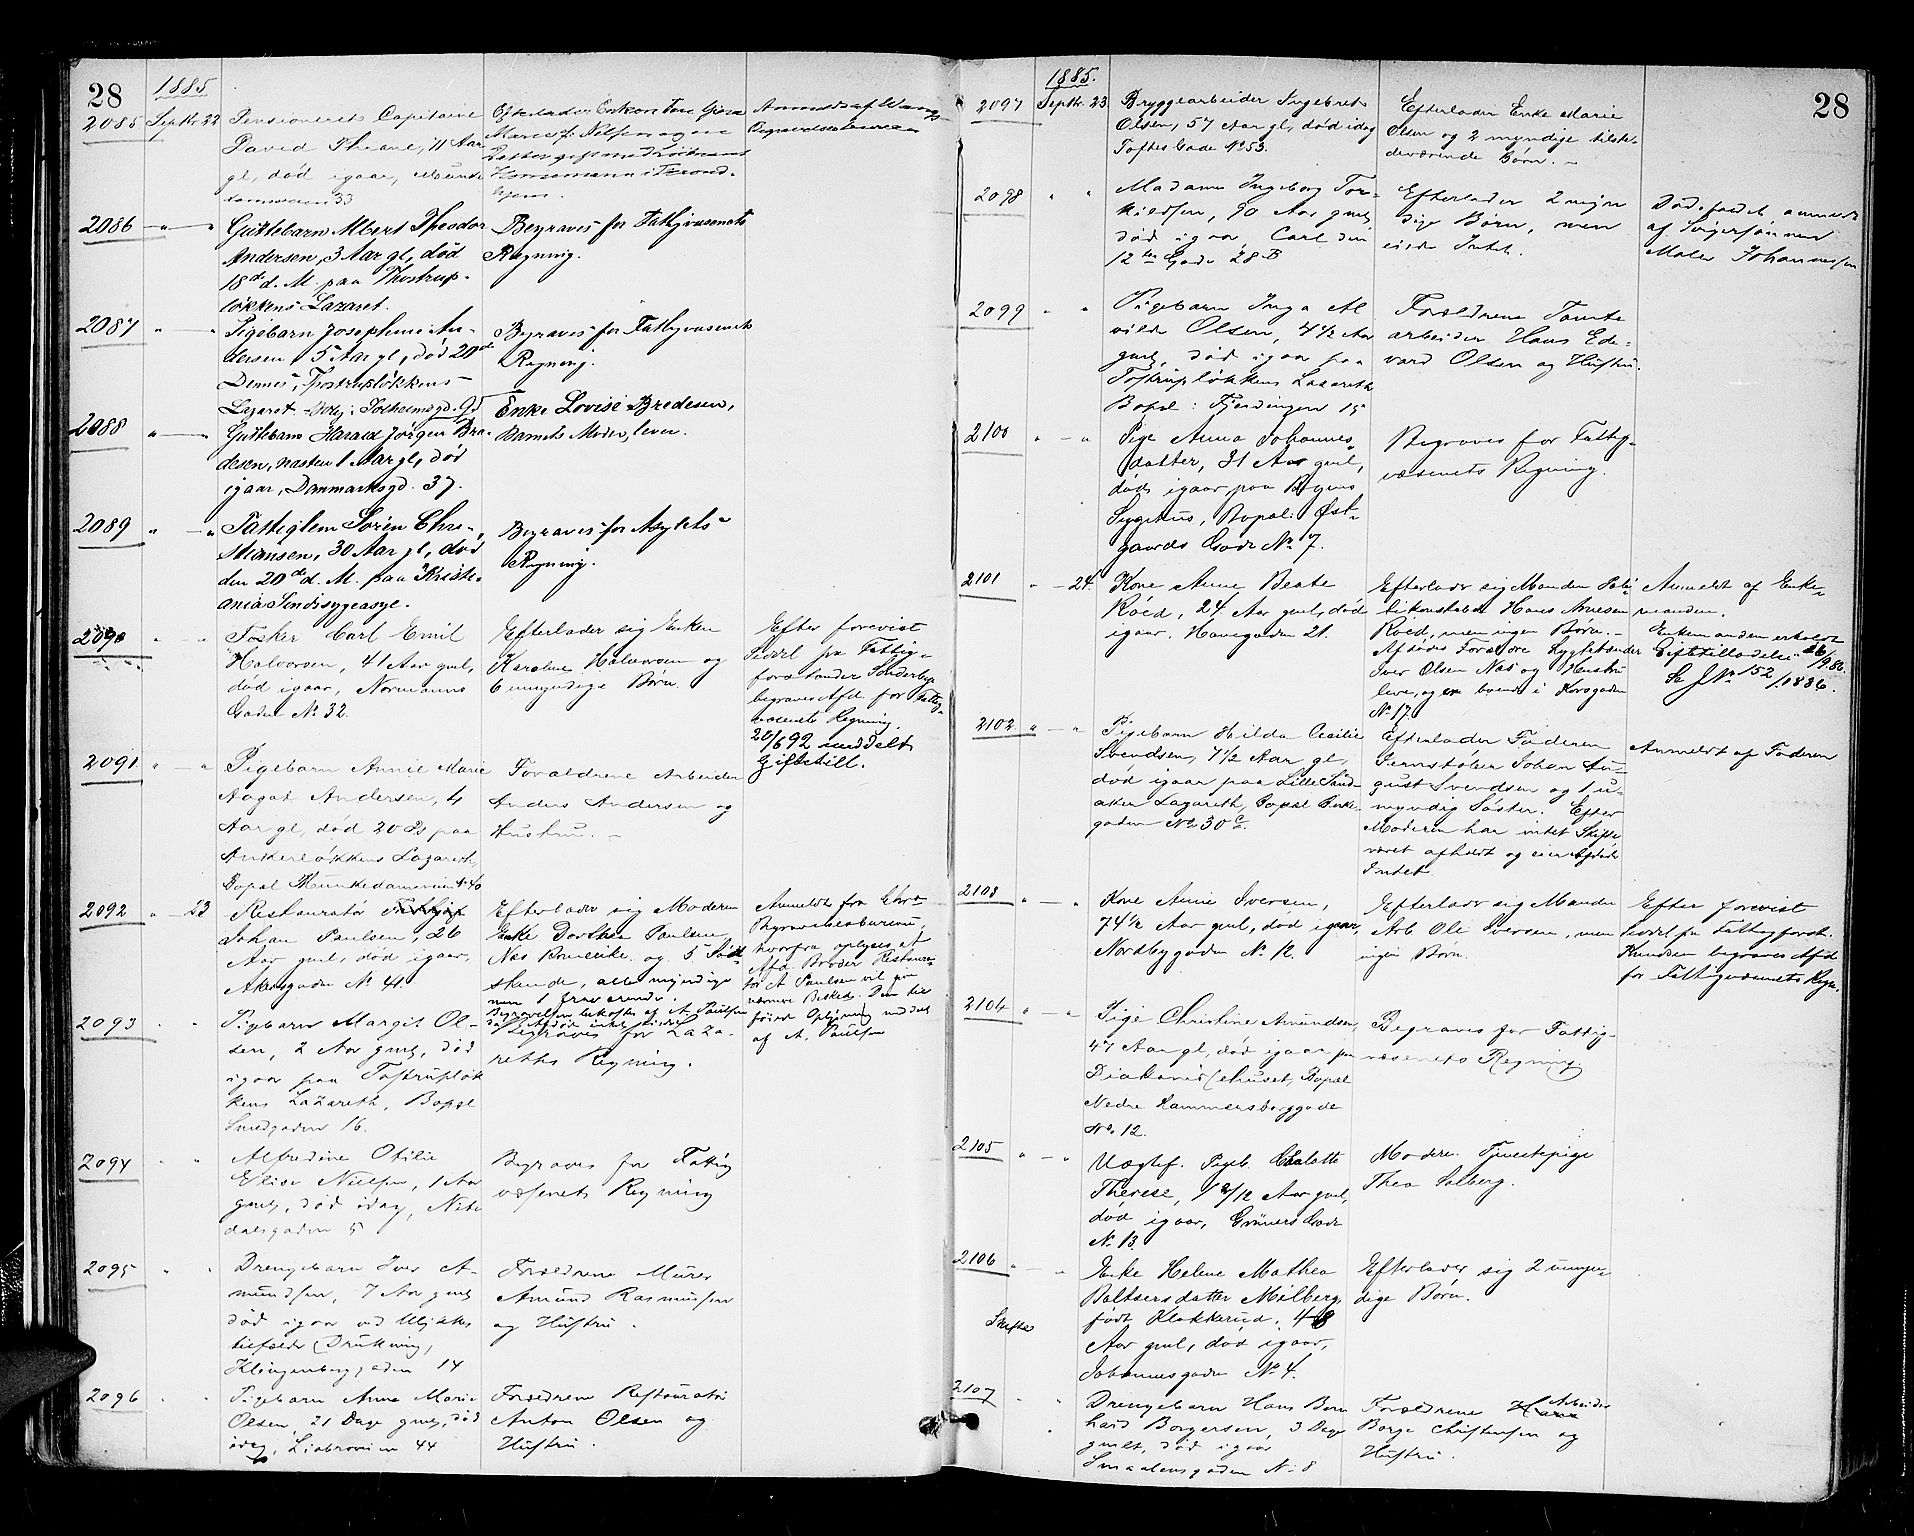 28
1885
2085 Septbr 22
Pensioneret Capitaine
David Thrane, 71 Aar
gl, død igaar, Munke
damsveien 33
Efterlader Enken
Marie f. Nilsen og en
Datter gift med
i Trond-
hjem.
Anmeldt af
Begravelsesbureau
2086 " — "
Guttebarn Albert Theodor
Andersen, 3 Aar gl, død
18de d. M. paa Thostrup-
løkkens Lazaret.
Begraves for Fattigvæsenets
Regning.
2087 " "
Pigebarn Josephine An-
dersen 5 Aar gl, død 20de
Dennes, Thostrupløkkens
Lazaret
Begraves for Fattigvæsenets
Regning.
2088 " — "
Guttebarn Harald Jørgen Bre-
desen, næsten 1 Aar gl, død
igaar, Danmarksgd. 37.
Enke Lovise Bredesen,
Barnets Moder, lever.
2089 " — "
Fattiglem Søren Chri-
stiansen, 30 Aar gl, død
den 20de d. M. paa Kristi-
ania Sindsygeasyl.
Begraves for Asylets
Regning.
2090 " "
Tosker Carl Emil
Halvorsen, 41 Aar gml,
død igaar, Normanns
Gade No 32.
Efterlader sig Enken
Karoline Halvorsen og
6 umyndige Børn.
Efter forevist
Seddel fra Fattig-
forstander Sønderbye
begraves Afd. for Fattig-
væsenets Regning.
20/6 92 meddelt
Giftetill.
2091 " — "
Pigebarn Annie Marie
Aagot Andersen, 4
Aar gl, død 20 ds paa
Ankerløkkens Lazareth,
Bopæl Munkedamsveien No 40
Forældrene Arbeider
Anders Andersen og
Hustru. –
2092 " — 23
Restauratør
Johan Paulsen, 26
Aar gml, død igaar,
Akersgaden No 41.
Efterlader sig Moderen
Enke Dorthea Paulsen,
Næs Romerike. og 5 Sød-
skende, alle myndige
men 1 fraværende.
Begravelsen bekostes af A. Paulsen
da Afdøde intet eiede
Anmeldt fra Chra
Begravelsesbureau,
hvorfra oplyses at
Afd. Broder Restaura-
tør A Paulsen vil give
nærmere Besked. Den til
føiede Oplysning meddelt
af A. Paulsen
2093 " "
Pigebarn Margit Ol-
sen, 2 Aar gml, død
igaar paa Toftrupløk
kens Lazareth, Bopæl
Smedgaden 16.
Begraves for Laza-
reths Regning.
2094 " "
Alfredine Otilie
Elise Nielsen, 1 Aar
gml, død idag, Nite
dalsgaden 5
Begraves for Fattig
væsenets Regning
2095 " "
Drengebarn Iver A-
mundsen, 7 Aar gml
død igaar ved Ulykkes
tilfælde (Drukning),
Klingenberggaden 14
Forældrene Murer
Amund Rasmussen
og Hustru.
2096 " "
Pigebarn Anna Marie
Olsen, 21 Dage gml, død
idag, Liabroveien 44
Forældrene Restauratør
Anton Olsen og
Hustru.
28
1885.
2097 Septbr. 23
Bryggearbeider Ingebret
Olsen, 57 Aar gl, død idag
Toftes Gade No 53.
Efterlader Enke Marie
Olsen og 2 myndige tilste-
deværende Børn. –
2098 " "
Madame Ingeborg Tor-
kildsen, 90 Aar gml,
død igaar Carl den
12tes Gade 28 B
Efterlader 2 myn
dige Børn, men
eiede Intet.
Dødsfaldet anmeldt
af Svigersønnen
Maler Johannessen
2099 " "
Pigebarn Inga Al
vilde Olsen, 4 1/2 Aar
gml, død igaar paa
Toftrupløkkens Lazareth
Bopæl: Fjerdingen 15
Forældrene Tomte
arbeider Hans Ed-
vard Olsen og Hustru.
2100 " — "
Pige Anna Johannes
datter, 31 Aar gml,
død igaar paa Byens
Sygehus, Bopæl: Øst-
gaards Gade No 7.
Begraves for Fattig-
væsenets Regning.
2101 " — 24.
Kone Anne Beate
Röed, 24 Aar gml, død
igaar. Hausgaden 21.
Efterlader sig Manden Poli-
tikonstabel Hans Arnesen
Röed, men ingen Børn. –
Afdødes Forældre Lygtetænder
Iver Olsen Næs og Hustru
lever, og er boende i Korsgaden
No 17.
Anmeldt af Enke-
manden.
Enkemanden erholdt
Giftetilladelse 26/9 86.
Se J No 152/1886.
2102 " — "
Pigebarn Hilda Cecilie
Svendsen, 7 1/2 Aar gl,
død igaar paa Lille Sand-
aker Lazareth, Bopæl Birke-
gaden No 30 c.
Efterlader Faderen
Jernstøber Johan Au-
gust Svendsen og 1 u-
myndig Søster. Efter
Moderen har intet Skifte
været afholdt og eier Afdøde
Intet.
Anmeldt af Faderen
2103 " — "
Kone Anne Iversen,
74 1/2 Aar gml, død igaar,
Nordbygaden No 12.
Efterlader sig Manden
Arb. Ole Iversen, men
ingen Børn.
Efter forevist
Seddel fra Fattigforst.
Knudsen begraves Afd.
for Fattigvæsenets Regn.
2104 " — "
Pige Christine Amundsen,
47 Aar gl, død igaar paa
Diakonissehuset, Bopæl
Nedre Hammersborggade
No. 12.
Begraves for Fattig-
væsenets Regning
2105 " — "
Uægtef. Pigeb. Charlotte
Therese, 1 2/12 Aar gml,
død igaar, Grüners Gade
No 13.
Moder: Tjenestepige
Thea Solberg.
2106 " — "
Skifte
Enke Helene Mathea
Baltsersdatter Milberg,
født Klokkerud, 48
Aar gml, død igaar,
Johannesgaden No 4.
Efterlader sig 2 umyn-
dige Børn.
2107 " "
Drengebarn Hans Bern
hard Borgersen, 3 Dage
gmlt, død igaar
Smaalensgaden No 8
Forældrene Arbeider
Borge Christensen og
Hustru.